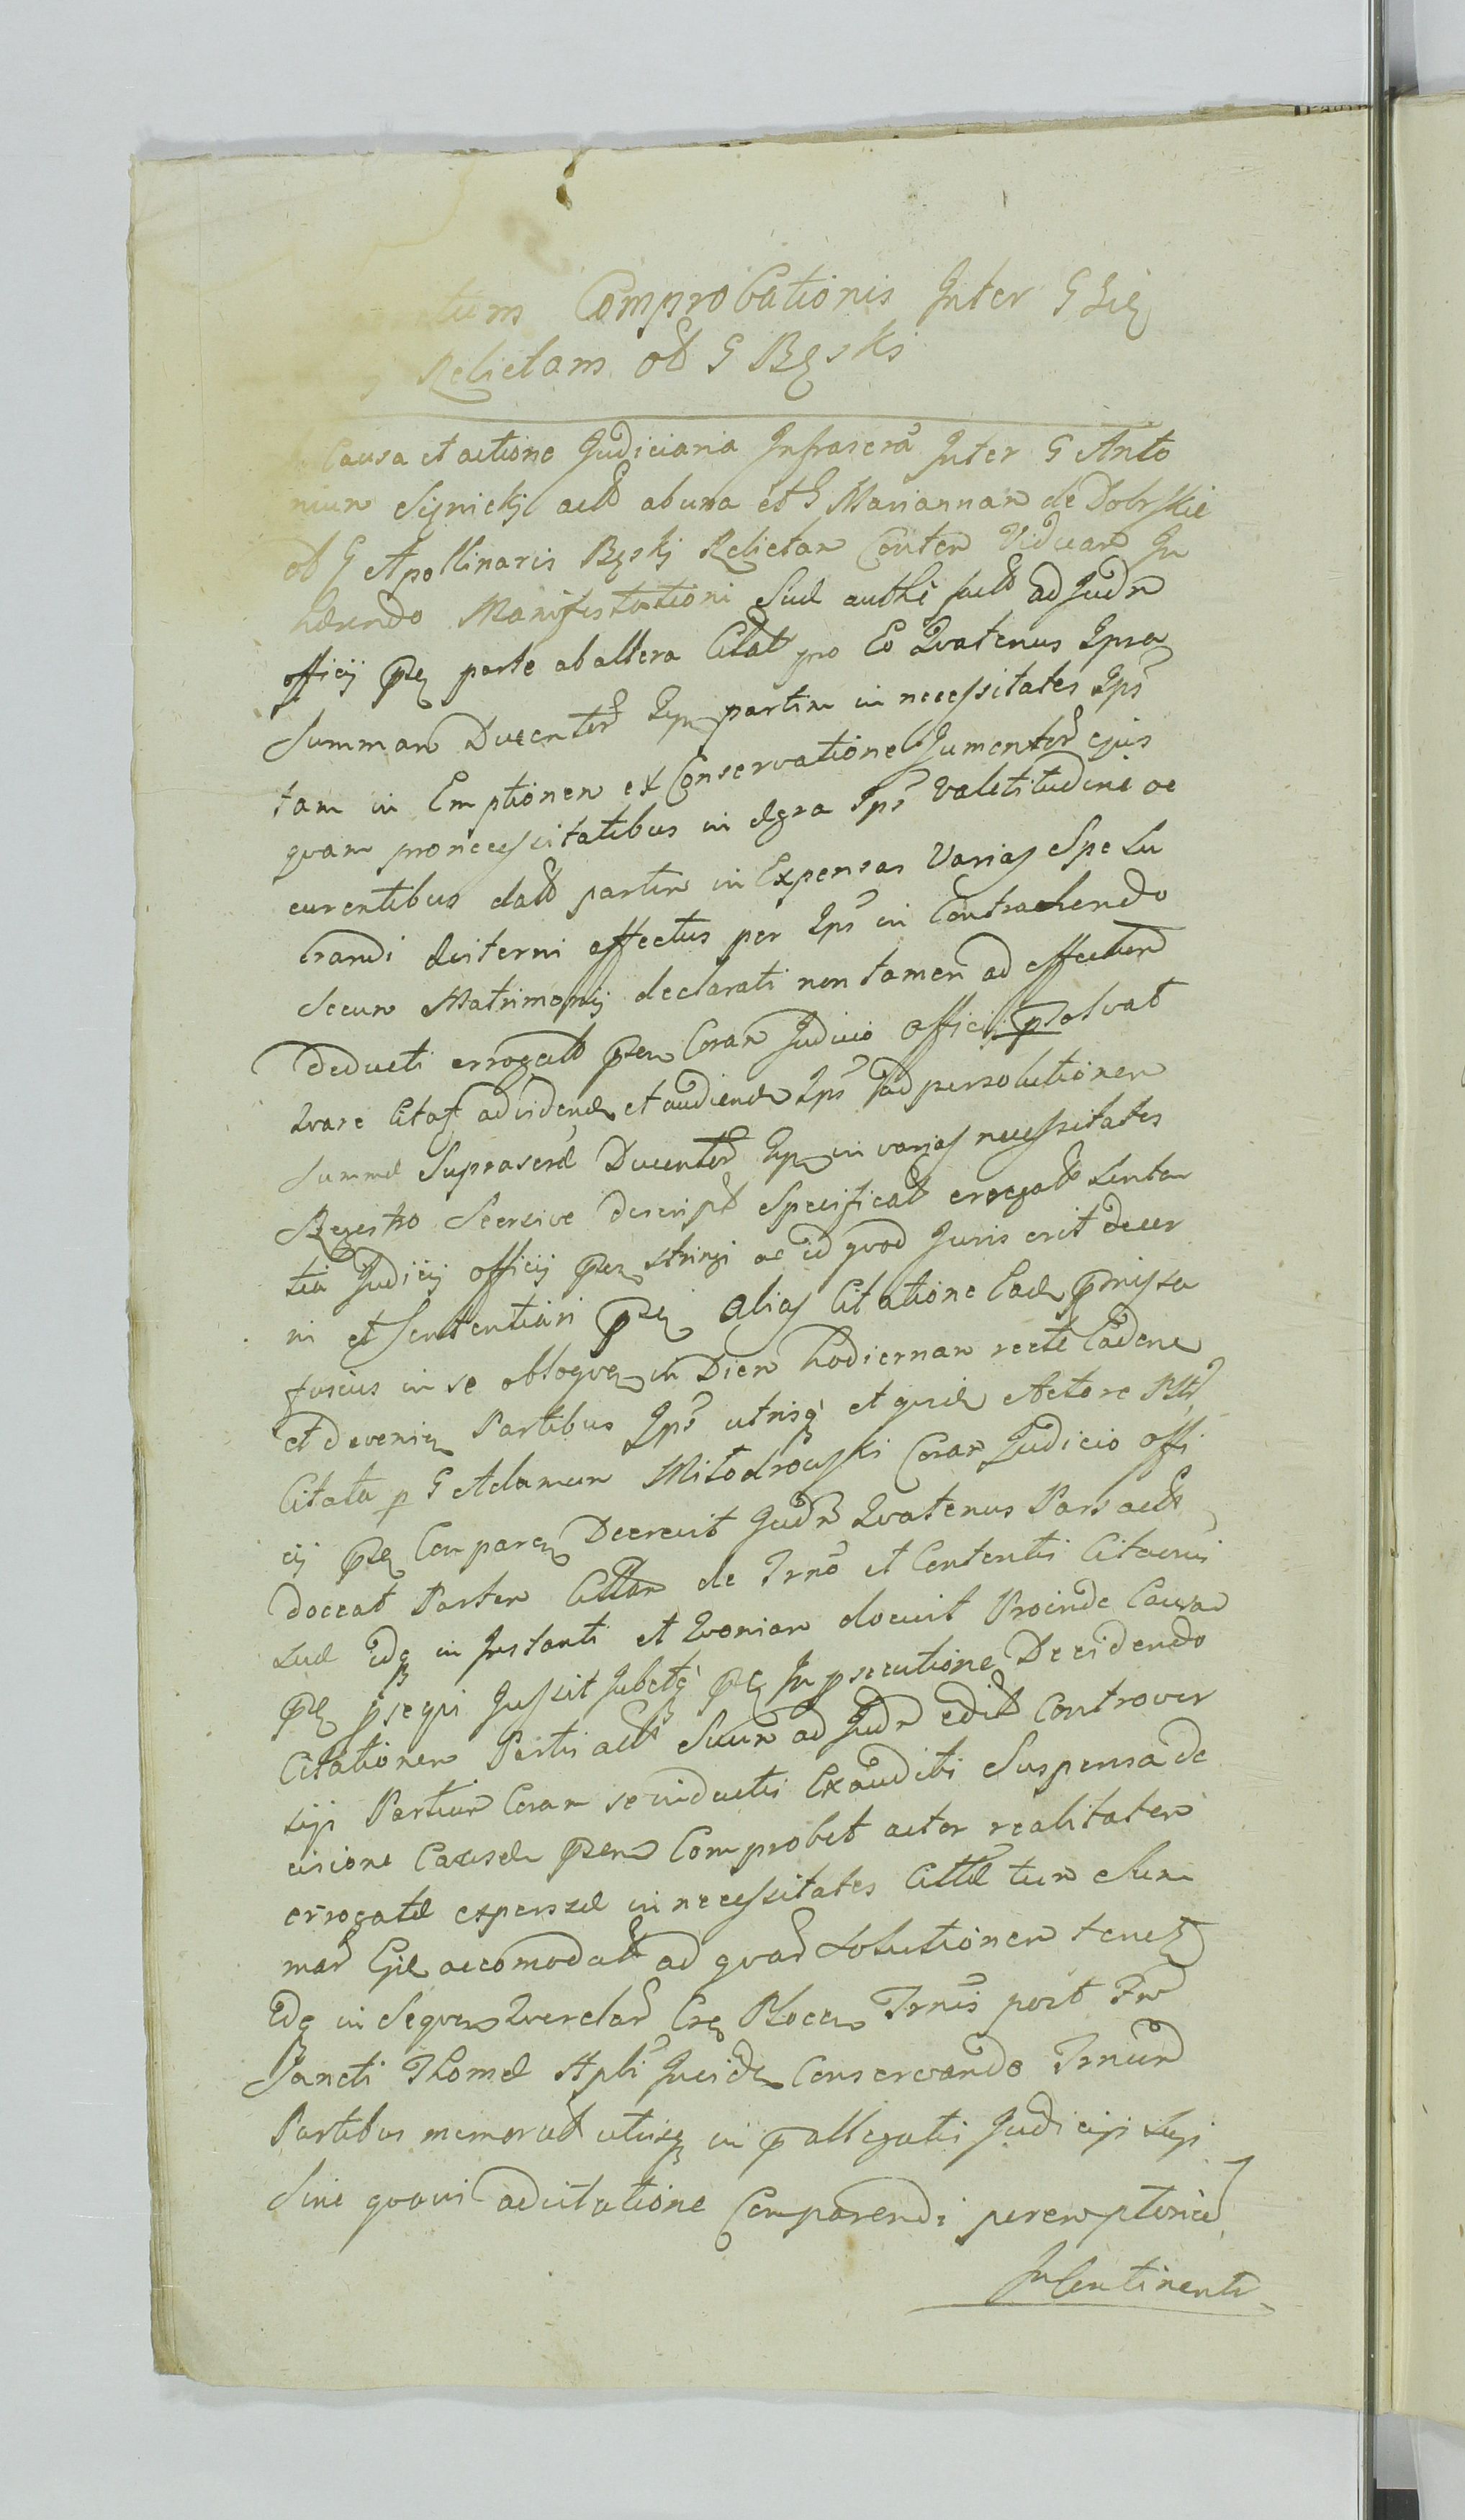 tum Comprobationis Inter G Zie
Relictam ob G Bęski
Causa et actione Judiciaria Infrascra Inter G Anto
nium Signicki act ab una et G Mariannam de Dobrskie
ob G Apollinaris Bęski Relictam Viduam In
hærendo Manifestationi Suæ authi fact ad Judm
officij pñs parte ab altera Citat pro Eo Quatenus Ipsa
Summam Ducentor partim in necessitates Ips
tam in Emptionem et Conservatione Jumentor ejus
quam pro necessitatibus in ægra Ips Valetitudine oc
curentibus dat partim in Expensas Varias Spe Lu
crandi effectus per Ips in Contrahendo
Secum Matrimonij declarati non tamen ad effectum
deducti errogat pñm Coram Judicio officij psolvat
Quare Citat ad vidend et audiend Ips ad persolutionem
Summæ Suprascræ Ducentor in varias necessitates
Regestro Seorsive descript Specificat erogat Senten
tia Judicij officij pñs stringi ac id quod Juris erit decer
ni et Sententiari pñs Alias Citatione Ead pmissa
fusius in se obloquen in Diem hodiernam recte Cadene
et devenien Partibus Ips utrisq et quid Actore
Citata p G Adamum Miłodrowski Coram Judicio offi
cij pñs Comparen Decrevit Judm Quatenus Pars act
doceat Partem Cittam de Trno et Contentis Citaoni
Suæ idq in Instanti et Quoniam docuit Proinde Causam
pñs psequi Jussit Jubetq pñs In psecutione Decidendo
Citationem Partis act Suum ad Judm edit Controver
sijs Partium Coram se inductis Exauditis Suspensa de
cisione Causæ pñs Comprobet actor realitatem
errogatæ expensæ in necessitates Cittæ tum Sum
mam Ejæ accomodat ad quam Solutionem tenet
Idq in Sequen Querelar Cre Plocen Trnis post Fm
Sancti Thomæ Apli Inciden Conservando Trnum
Partibus memorat utrisq in pallegatis Judicijs Sujs
Sine quavis adcitatione Comparendi peremptorie
In Continenti